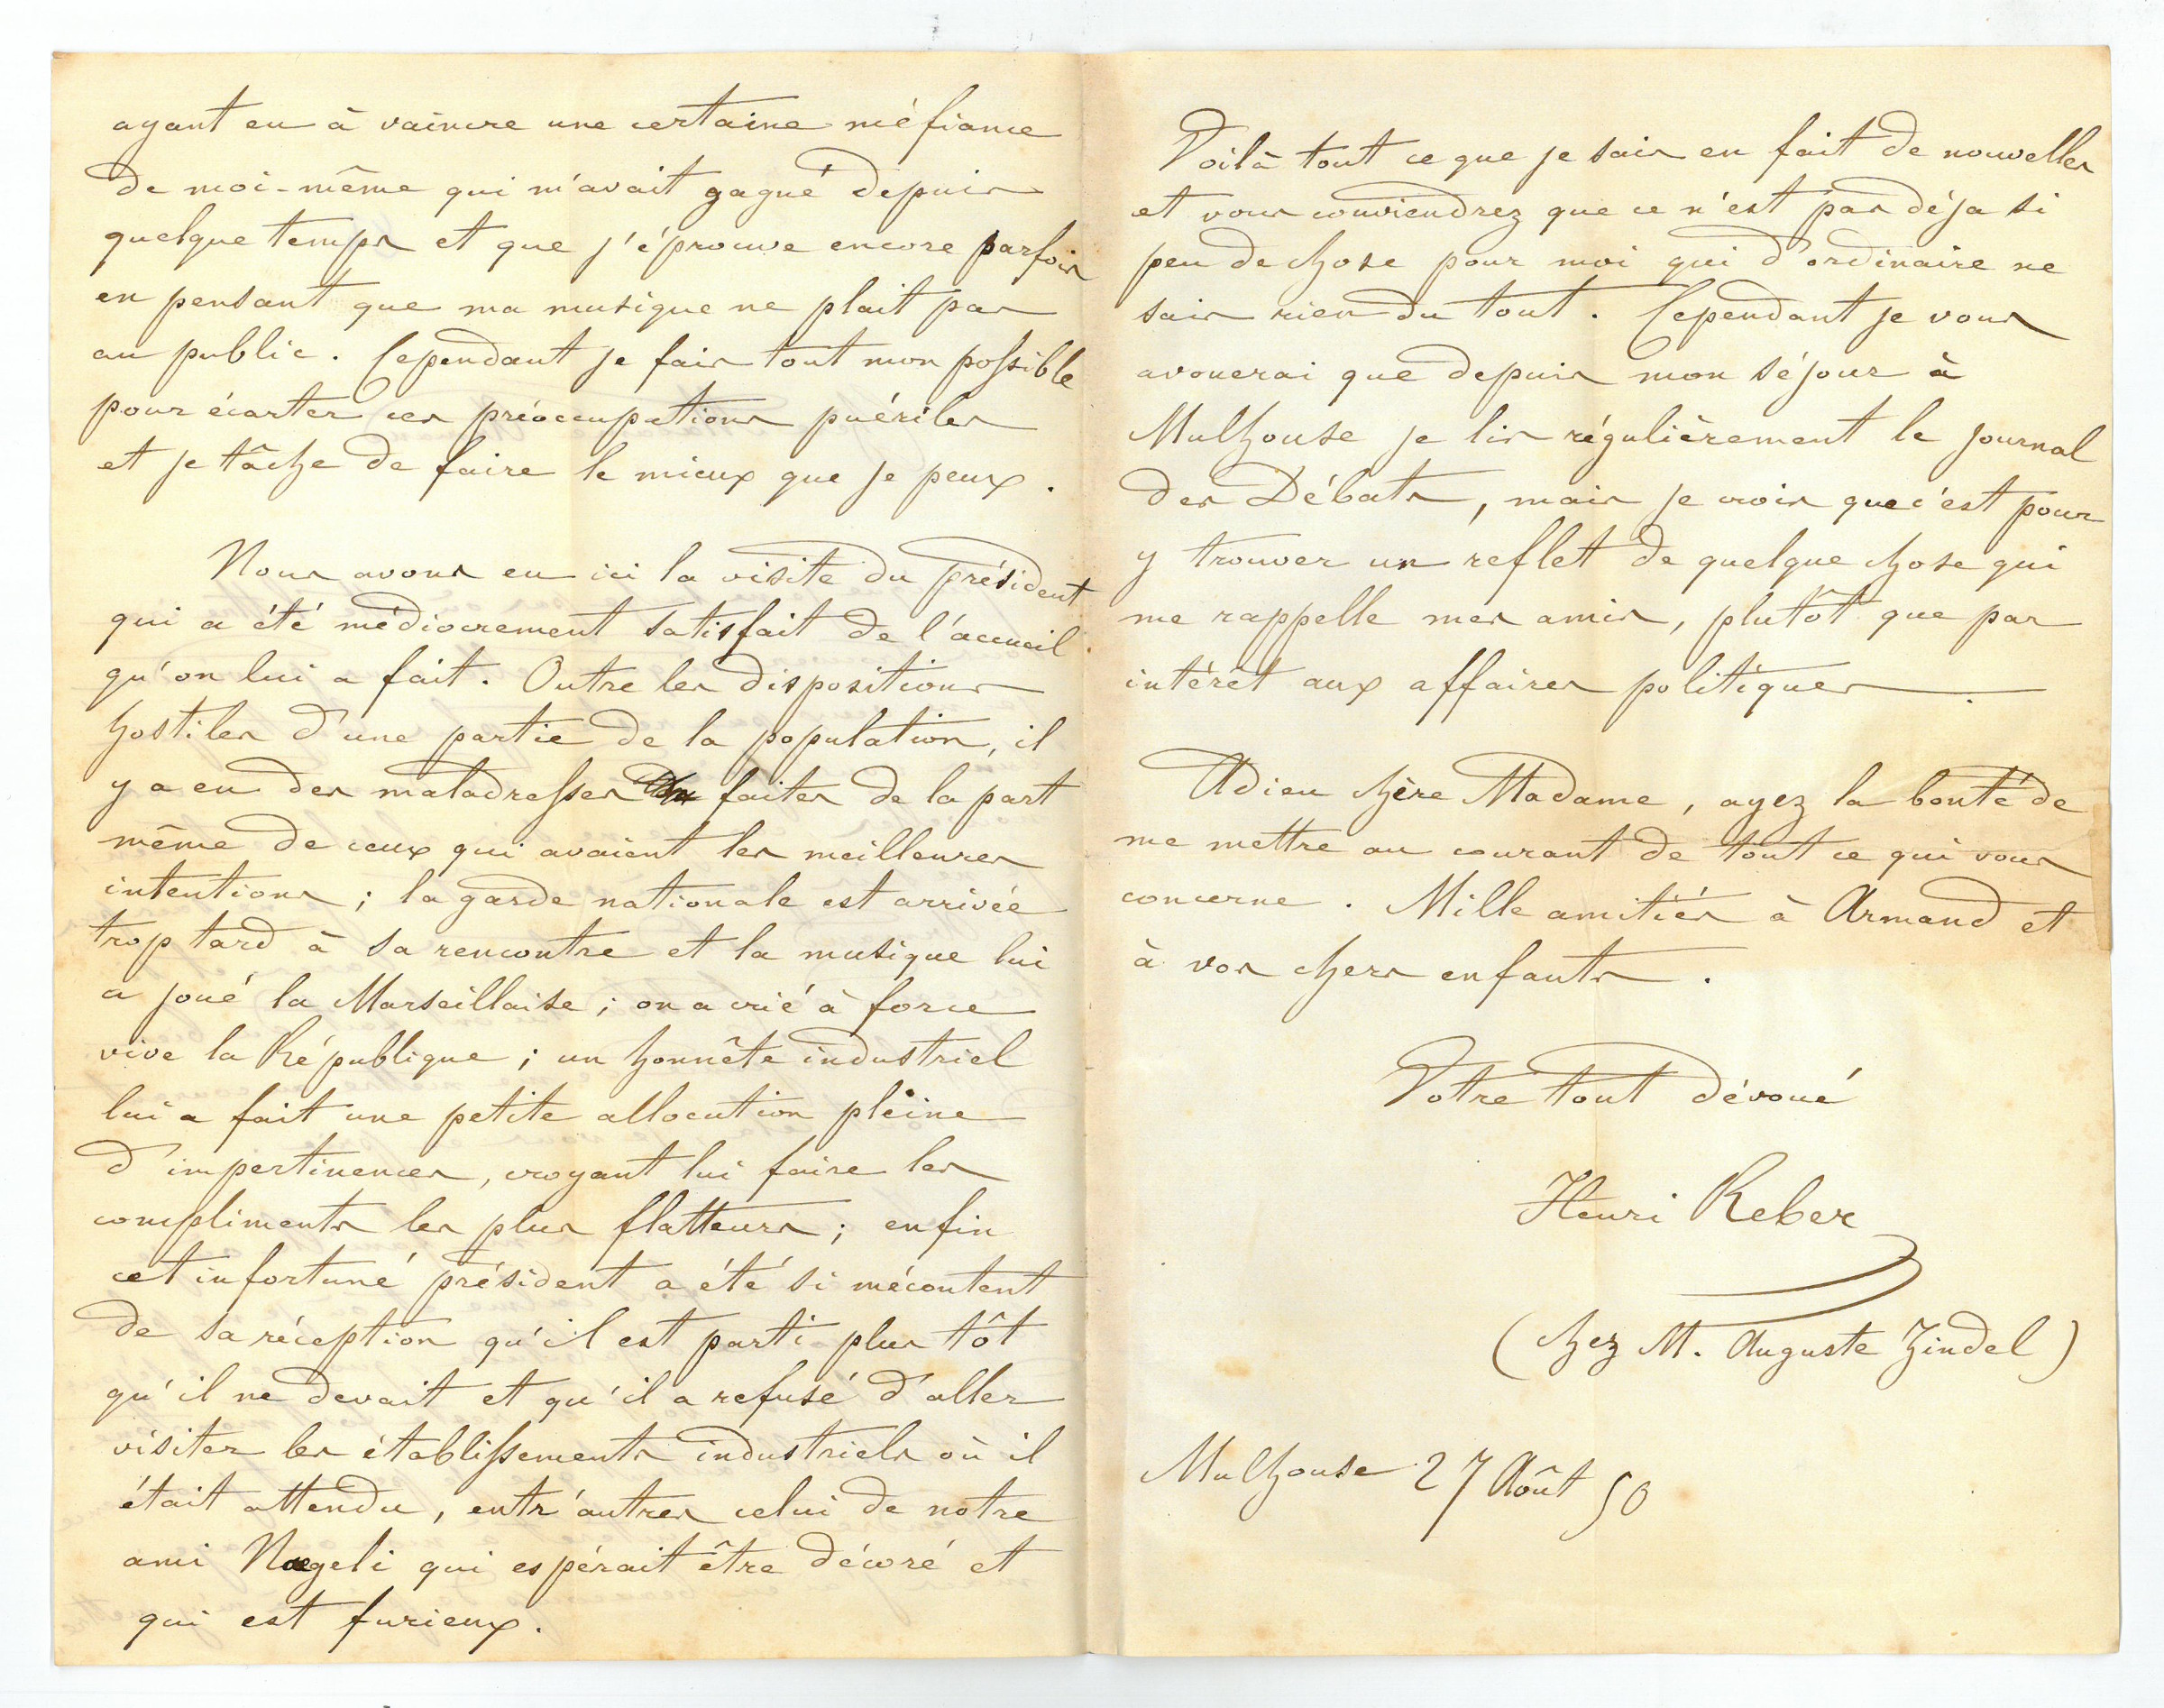 ayant eu à vaincre une certaine méfiance
de moi-même qui m'avait gagné depuis
quelque temps et que j'éprouve encore parfois
en pensant que ma musique ne plait pas
au public. Cependant je fais tout mon possible
pour écarter ces préoccupations puériles
et je tâche de faire le mieux que je peux.
Nous avons eu ici la visite du Président
qui a été médiocrement satisfait de l'accueil
qu'on lui a fait. Outre les dispositions
hostiles d'une partie de la population, il
y a eu des maladresses faites de la part
même de ceux qui avaient les meilleures
intentions ; la garde nationale est arrivée
trop tard à sa rencontre et la musique lui
a joué la Marseillaise ; on a crié à force
vive la République ; un honnête industriel
lui a fait une petite allocution pleine
d'impertinences, croyant lui faire les
compliments les plus flatteurs ; enfin
cet infortuné président a été si mécontent
de sa réception qu'il est parti plus tôt
qu'il ne devait et qu'il a refusé d'aller
visiter les établissements industriels où il
était attendu, entr'autres celui de notre
ami Naegeli qui espérait être décoré et
qui est furieux.
Voilà tout ce que je sais en fait de nouvelles
et vous conviendrez que ce n'est pas déja si
peu de chose pour moi qui d'ordinaire ne
sais rien du tout. Cependant je vous
avouerai que depuis mon séjour à
Mulhouse je lis régulièrement le journal
des Débats, mais je crois que c'est pour
y trouver un reflet de quelque chose qui
me rappelle mes amis, plutôt que par
intérêt aux affaires politiques.
Adieu chère Madame, ayez la bonté de
me mettre au courant de tout ce qui vous
concerne. Mille amitiés à Armand et
à vos chers enfants.
Votre tout dévoué
Henri Reber
(chez M. Auguste Zindel)
Mulhouse 27 Août 50